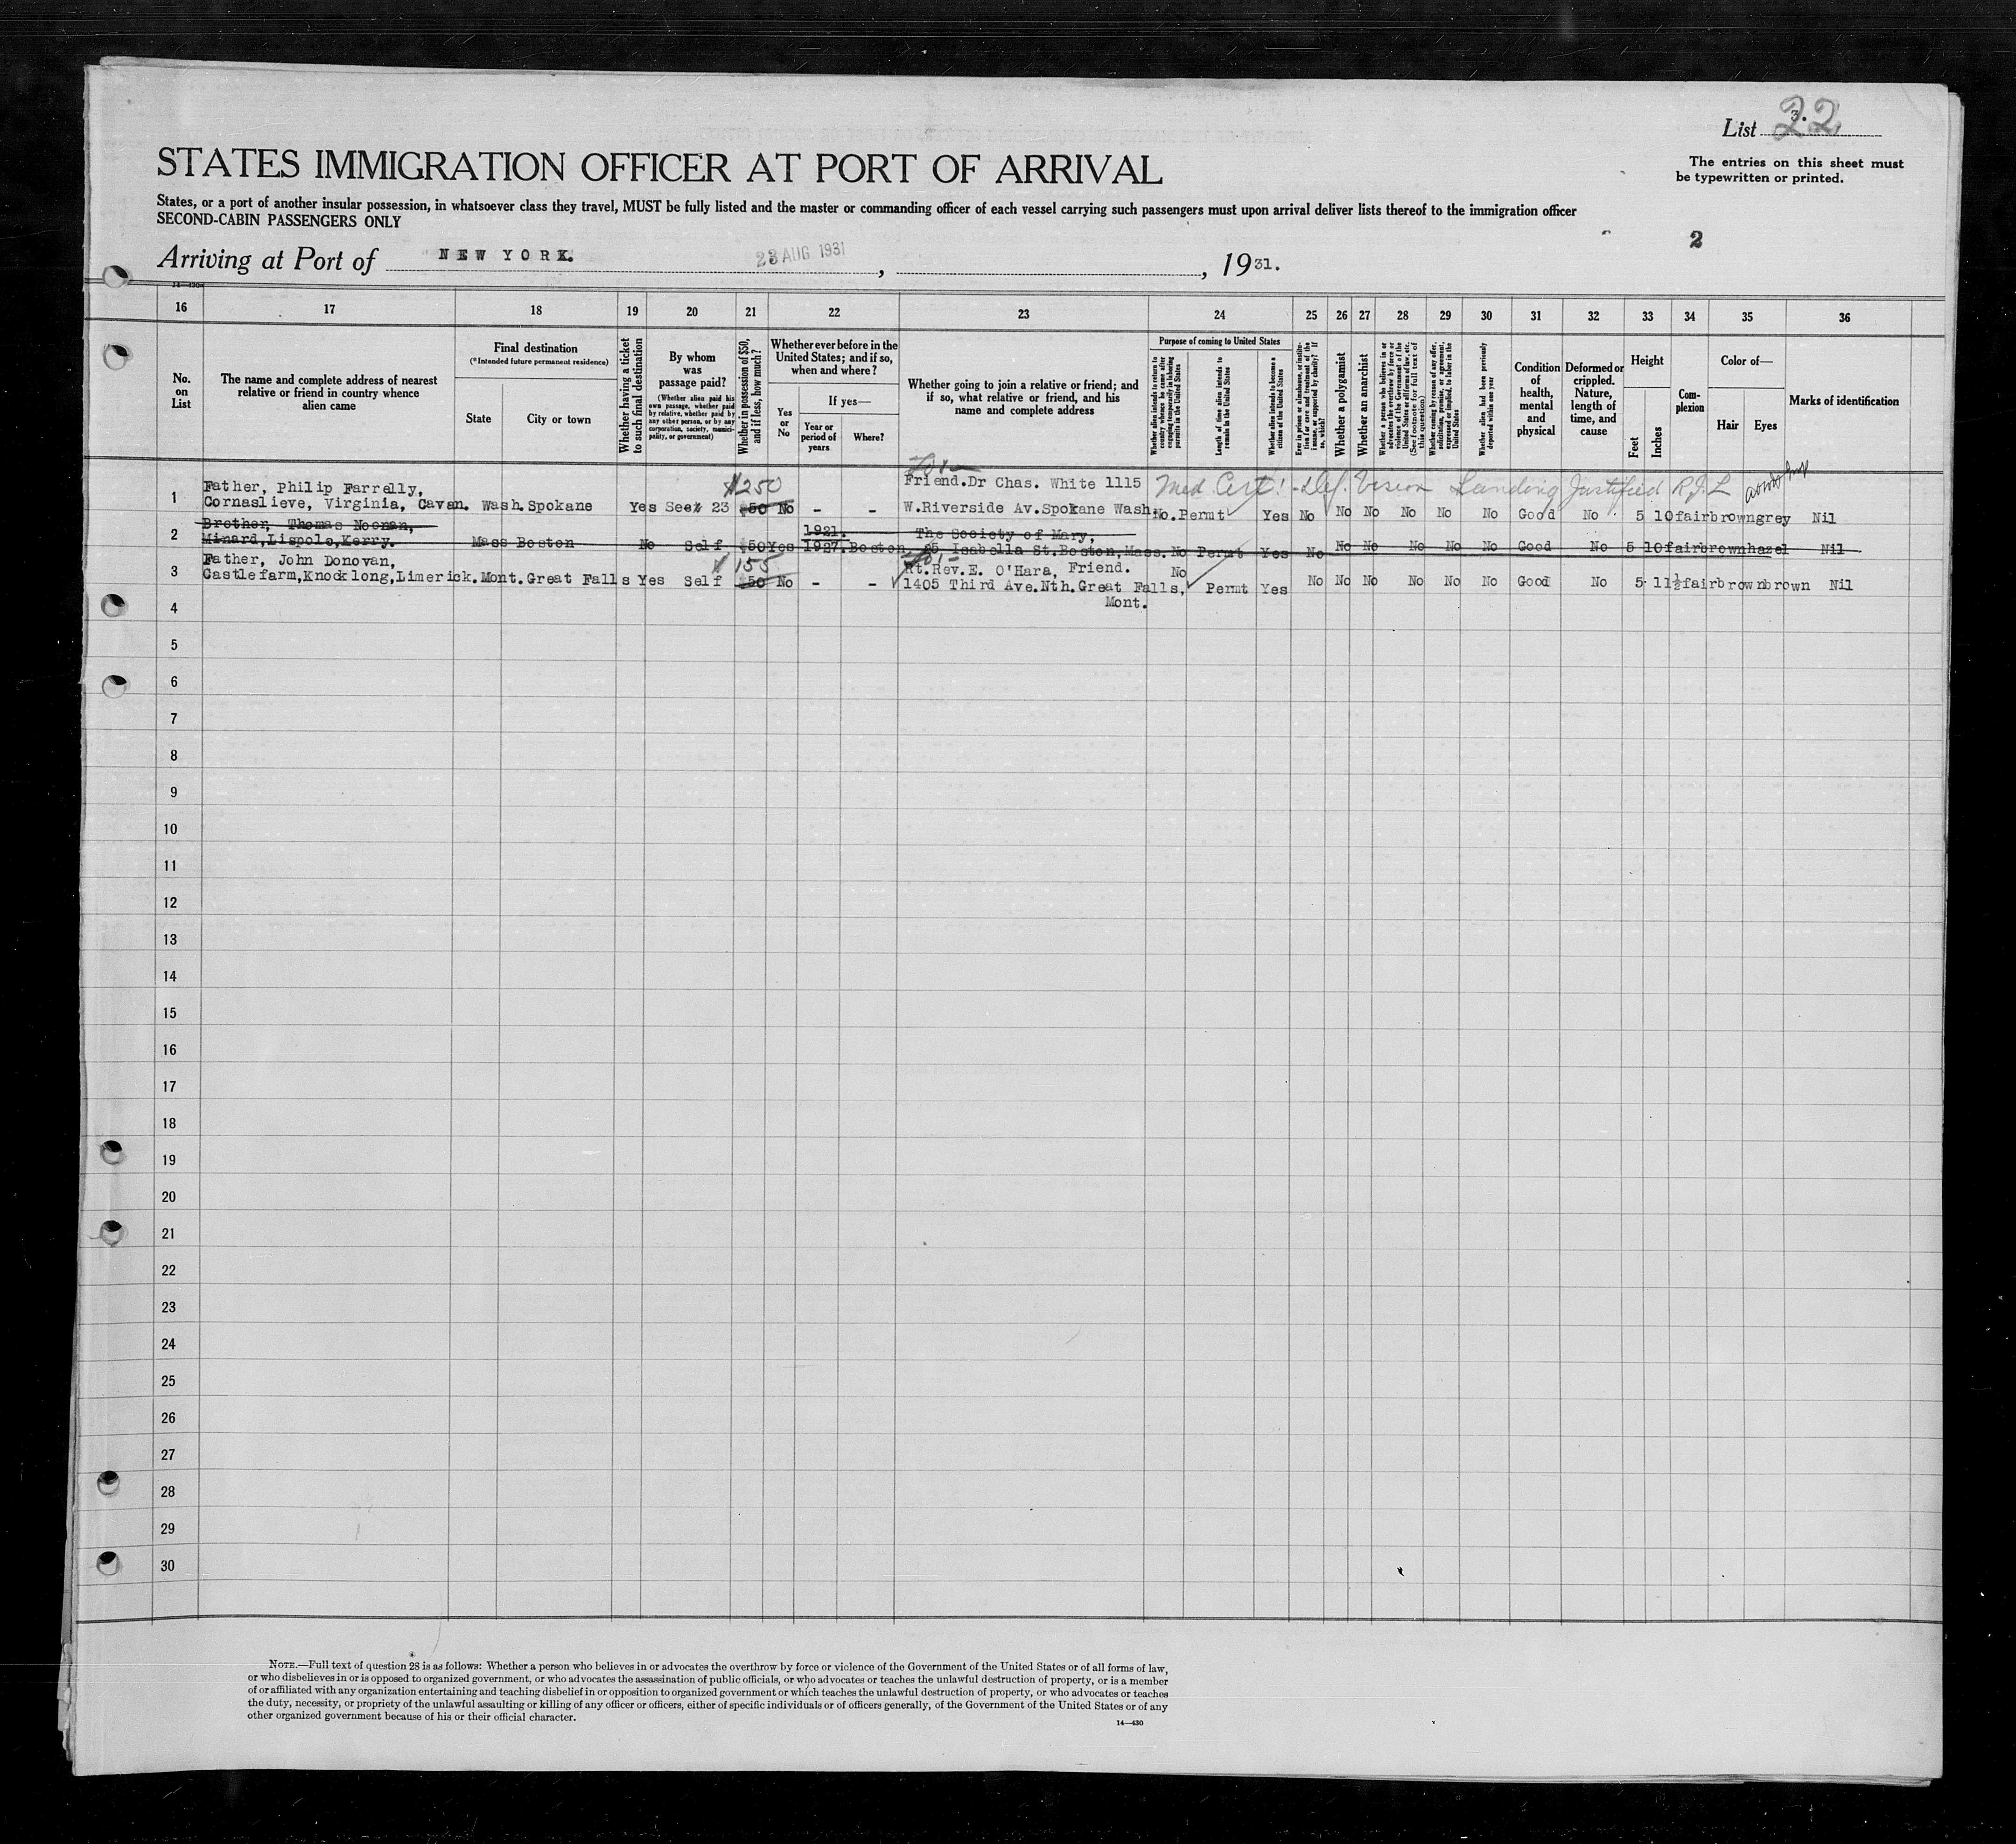 List 22
3.
The entries on this sheet must
be typewritten or printed.
STATES IMMIGRATION OFFICER AT PORT OF ARRIVAL
States, or a port of another insular possession, in whatsoever class they travel, MUST be fully listed and the master or commanding officer of each vessel carrying such passengers must upon arrival deliver lists thereof to the immigration officer
SECOND-CABIN PASSENGERS ONLY
2
Arriving at Port of NEW YORK. 23 AUG 1931, , 1931.
16 17 18 19 20 21 22 23 24 25 26 27 28 29 30 31 32 33 34 35 36
No. on List
The name and complete address of nearest relative or friend in country whence alien came
Final destination
(*Intended future permanent residence)
State
City or town
Whether having a ticket to such final destination
By whom was passage paid?
(Whether alien paid his own passage, whether paid by relative, whether paid by any other person, or by any corporation, society, municipality, or government)
Whether in possession of $50, and if less, how much?
Whether ever before in the United States; and if so, when and where?
Yes or No
If yes—
Year or period of years
Where?
Whether going to join a relative or friend; and if so, what relative or friend, and his name and complete address
Purpose of coming to United States
Whether alien intends to return to country whence he came after engaging temporarily in laboring pursuits in the United States
Length of time alien intends to remain in the United States
Whether alien intends to become a citizen of the United States
Ever in prison or almshouse, or institution for care and treatment of the insane, or supported by charity? If so, which?
Whether a polygamist
Whether an anarchist
Whether a person who believes in or advocates the overthrow by force or violence of the Government of the United States or all forms of law, etc. (See footnote for full text of this question)
Whether coming by reason of any offer, solicitation, promise, or agreement, expressed or implied, to labor in the United States
Whether alien had been previously deported within one year
Condition of health, mental and physical
Deformed or crippled. Nature, length of time, and cause
Height
Feet
Inches
Complexion
Color of—
Hair
Eyes
Marks of identification
$250
Med. Cert! - Def. Vision Landing Justified R.J.L
1 Father, Philip Farrelly, Friend.Dr Chas. White 1115
Cornaslieve, Virginia, Cavan. Wash. Spokane Yes See 23 $50 No - - W.Riverside Av.Spokane Wash. No. Permt Yes No No No No No No Good No 5 10 fair brown grey Nil
2 Brother, Thomas Noonan, 1921. The Society of Mary,
Minard,Lispole,Kerry. Mass Boston No Self $50 Yes 1927. Boston, 25, Isabella St.Boston,Mass. No Permt Yes No No No No No No Good No 5 10 fair brown hazel Nil
$155
3 Father, John Donovan, Rt.Rev.E. O'Hara, Friend. No
Castlefarm,Knocklong,Limerick. Mont. Great Falls Yes Self $50 No - - 1405 Third Ave.Nth.Great Falls, Permt Yes No No No No No No Good No 5 11½ fair brown brown Nil
Mont.
4
5
6
7
8
9
10
11
12
13
14
15
16
17
18
19
20
21
22
23
24
25
26
27
28
29
30
NOTE.—Full text of question 28 is as follows: Whether a person who believes in or advocates the overthrow by force or violence of the Government of the United States or of all forms of law,
or who disbelieves in or is opposed to organized government, or who advocates the assassination of public officials, or who advocates or teaches the unlawful destruction of property, or is a member
of or affiliated with any organization entertaining and teaching disbelief in or opposition to organized government or which teaches the unlawful destruction of property, or who advocates or teaches
the duty, necessity, or propriety of the unlawful assaulting or killing of any officer or officers, either of specific individuals or of officers generally, of the Government of the United States or of any
other organized government because of his or their official character.
14—430